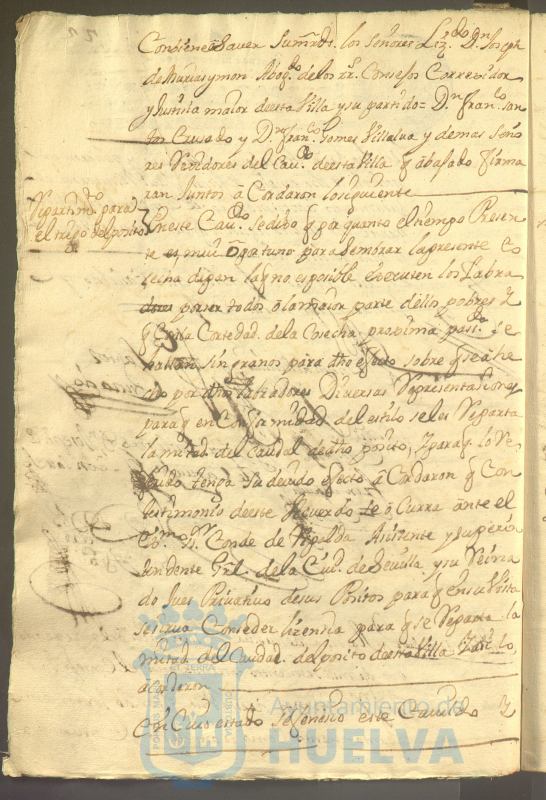 Conbiene a Saver Sumrds. los señores Lizdo. Dn. Joseph
de Murias ymon Abogdo. de los Rs. Consejos Correxidor
y Justicia maior de esta Villa y su partido = Dn. Franco. San
Cruzado y Dn. Franco. Gomes Villalva y demas Seño
res Rexidores del Cavdo. de esta Villa q abajo firma
ran Juntos acordaron lo siguiente
Repartimto. para
el trigo del posito
En este Cavdo. se dijo q por quanto el tiempo Presen
te es mui oportuno para sembrar la presente Co
secha di no es posible executen los Labra
dores por ser todos o la maior parte dellos pobres y
q Cortedad de la Cosecha proxima pasda. se
hallan sin granos para dho efecto sobre q se a he
cho por dhos Labradores Diversas Representasiones
para q en Conformidad del estilo se les Reparta
la mitad del Caudal de dho posito, y para q lo Re
ferido tenga su devido efecto acordaron q Con
testimonio de este Acuerdo se ocurra ante el
Exmo. Sr. Conde de Ripalda Asistente y Superin
tendente Grl. de la Ciud. de Sevilla y su Reina
do Jues Privativo de sus Positos para q en su Vista
se sirva Conseder lisensia para q se Reparta la
mitad del Caudal del posito de esta Villa y asi lo
acordaron
En Cuio estado se fenesio este Cavildo y
PORTUS MARIS ET TERRAE CUSTODIA
Ayuntamiento de
HUELVA